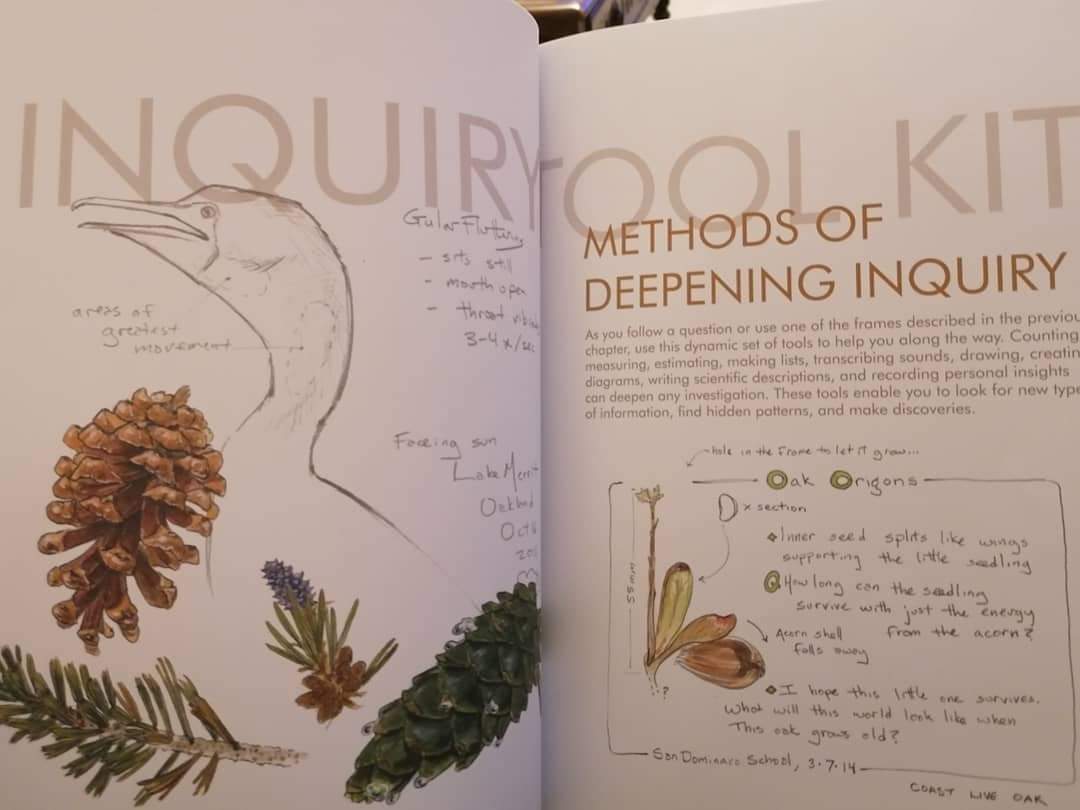 INQUIRY TOOL KIT
Gular Fluttering
- sits still
- mouth open
- throat
3-4 x/sec
areas of
greatest
movement
Facing sun
Lake Merrit
Oakland
Oct
METHODS OF
DEEPENING INQUIRY
As you follow a question or use one of the frames described in the previou
chapter, use this dynamic set of tools to help you along the way. Counting,
measuring, estimating, making lists, transcribing sounds, drawing, creatin
diagrams, writing scientific descriptions, and recording personal insights
can deepen any investigation. These tools enable you to look for new type
of information, find hidden patterns, and make discoveries.
hole in the frame to let it grow...
Oak Origons
x section
Inner seed splits like wings
supporting the little seedling
Q How long can the seedling
survive with just the energy
from the acorn?
Acorn shell
falls away
55mm
?
I hope this little one survives.
What will this world look like when
This oak grows old?
San Dominaco School, 3.7.14
COAST LIVE OAK